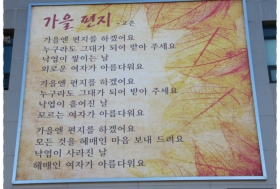 가을 편지 -고은
가을엔 편지를 하겠어요
누구라도 그대가 되어 받아 주세요
낙엽이 쌓이는 날
외로운 여자가 아름다워요
가을엔 편지를 하겠어요
누구라도 그대가 되어 받아 주세요
낙엽이 흩어진 날
모르는 여자가 아름다워요
가을엔 편지를 하겠어요
모든 것을 헤매인 마음 보내 드려요
낙엽이 사라진 날
헤매인 여자가 아름다워요